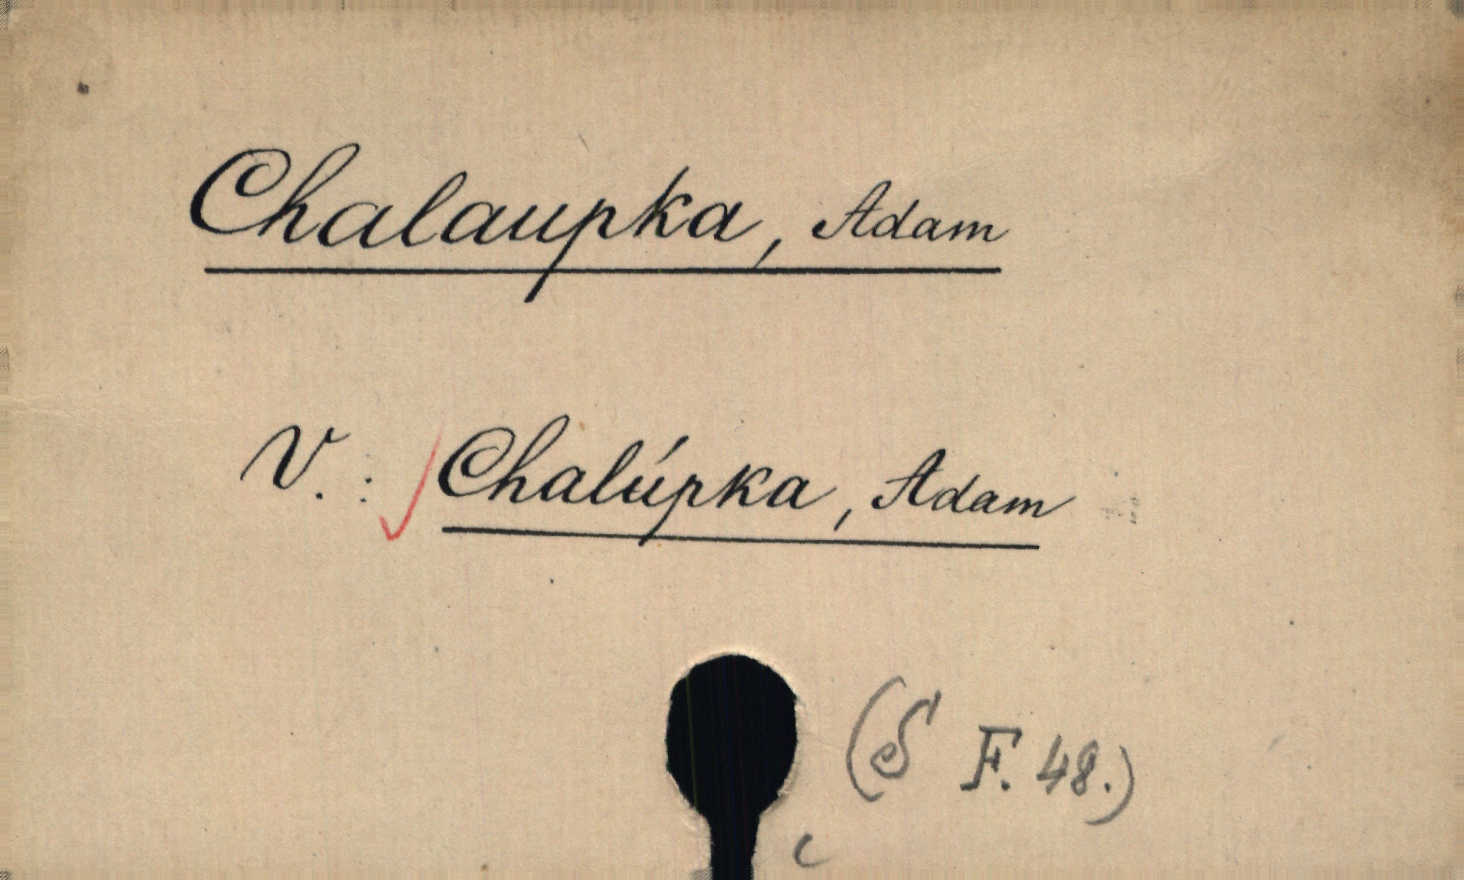 Chalaupka, Adam
V. : Chalúpka, Adam
(S F. 48.)
c